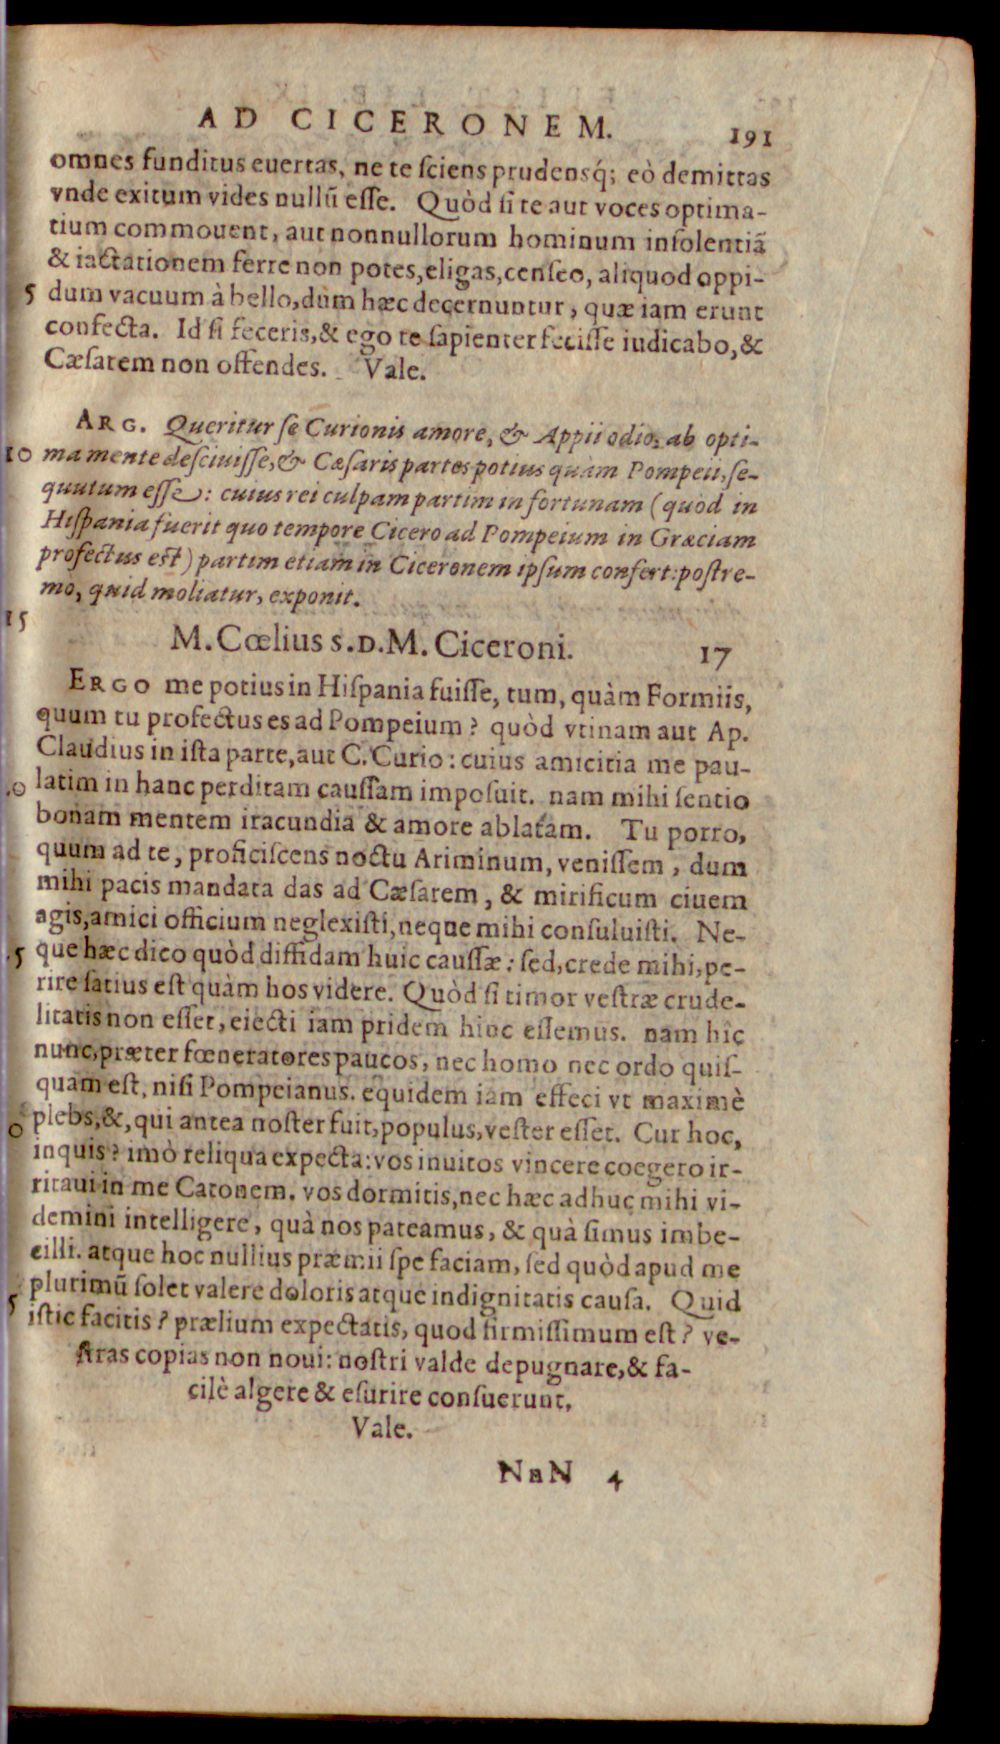 AD CICERONEM. 191
omnes funditus euertas, ne te sciens prudensq́; eò demittas
vnde exitum vides nullū esse. Quòd si te aut voces optima-
tium commouent, aut nonnullorum hominum insolentiā
& iactationem ferre non potes, eligas, censeo, aliquod oppi-
5 dum vacuum à bello, dum hæc decernuntur, quæ iam erunt
confecta. Id si feceris, & ego te sapienter fecisse iudicabo, &
Cæsarem non offendes. Vale.
ARG. Queritur se Curionis amore, & Appii odio, ab opti-
10 ma mente desciuisse, & Cæsaris partes potius quàm Pompeii, se-
quutum esse: cuius rei culpam partim in fortunam (quòd in
Hispania fuerit quo tempore Cicero ad Pompeium in Græciam
profectus est) partim etiam in Ciceronem ipsum confert: postre-
mò, quid moliatur, exponit.
15
M. Cœlius S. D. M. Ciceroni. 17
ERGO me potius in Hispania fuisse, tum, quàm Formiis,
quum tu profectus es ad Pompeium? quòd vtinam aut Ap.
Claudius in ista parte, aut C. Curio: cuius amicitia me pau-
.0 latim in hanc perditam caussam imposuit. nam mihi sentio
bonam mentem iracundia & amore ablatam. Tu porro,
quum ad te, proficiscens noctu Ariminum, venissem, dum
mihi pacis mandata das ad Cæsarem, & mirificum ciuem
agis, amici officium neglexisti, neque mihi consuluisti. Ne-
.5 que hæc dico quòd diffidam huic caussæ: sed, crede mihi, pe-
rire satius est quàm hos videre. Quòd si timor vestræ crude-
litatis non esset, eiecti iam pridem hinc essemus. nam hîc
nunc, præter fœneratores paucos, nec homo nec ordo quis-
quam est, nisi Pompeianus. equidem iam effeci vt maximè
0 plebs, &, qui antea noster fuit, populus, vester esset. Cur hoc,
inquis? imò reliqua expecta: vos inuitos vincere coegero ir-
ritaui in me Catonem. vos dormitis, nec hæc adhuc mihi vi-
demini intelligere, quà nos pateamus, & quà simus imbe-
cilli. atque hoc nullius præmii spe faciam, sed quòd apud me
5 plurimū solet valere doloris atque indignitatis causa. Quid
istic facitis? prælium expectatis, quod firmissimum est? ve-
stras copias non noui: nostri valde depugnare, & fa-
cilè algere & esurire consuerunt,
Vale.
NnN 4